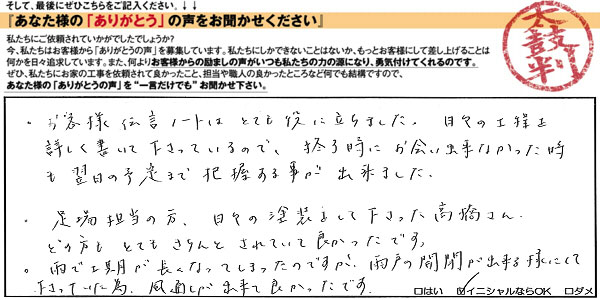 そして、最後にぜひこちらをご記入ください。↓↓
『あなた様の「ありがとう」の声をお聞かせください』
私たちにご依頼されていかがでしたでしょうか?
今、私たちはお客様から「ありがとうの声」を募集しています。私たちにしかできないことはないか、もっとお客様にして差し上げることは
何かを日々追求しています。また、何よりお客様からの励ましの声がいつも私たちの力の源になり、勇気付けてくれるのです。
ぜひ、私たちにお家の工事を依頼されて良かったこと、担当や職人の良かったところなど何でも結構ですので、
あなた様の「ありがとうの声」を"一言だけでも"お聞かせ下さい。
太鼓判
・お客様伝言ノートはとても役に立ちました。日々の工程を
詳しく書いて下さっているので、終了時にお会い出来なかった時
も翌日の予定まで把握ある事が出来ました。
・足場担当の方、日々の塗装をして下さった高橋さん。
どの方もとてもきちんとされていて良かったです。
・雨で工期が長くなってしまったのですが、雨戸の開閉が出来る様にして
下さっていた為、風通しが出来て良かったです。
□はい ☑イニシャルならOK □ダメ